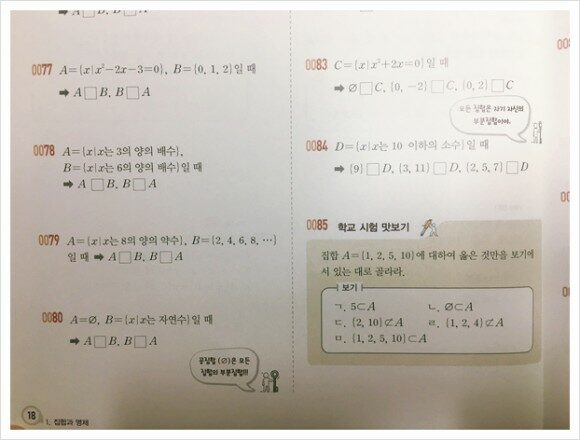 ➡ A□B, B□A
0077 A={x|x²-2x-3=0}, B={0, 1, 2}일 때
➡ A□B, B□A
0078
A={x|x는 3의 양의 배수},
B={x|x는 6의 양의 배수}일 때
➡ A□B, B□A
0079 A={x|x는 8의 양의 약수}, B={2, 4, 6, 8, ⋯}
일 때 ➡ A□B, B□A
0080 A=∅, B={x|x는 자연수}일 때
➡ A□B, B□A
공집합(∅)은 모든
집합의 부분집합!!!
18
I. 집합과 명제
0083 C={x|x²+2x=0}일 때
➡ ∅□C, {0, -2}□C, {0, 2}□C
모든 집합은 자기 자신의
부분집합이야.
0084 D={x|x는 10 이하의 소수}일 때
➡ {9}□D, {3, 11}□D, {2, 5, 7}□D
0085 학교 시험 맛보기
집합 A={1, 2, 5, 10}에 대하여 옳은 것만을 보기에
서 있는 대로 골라라.
보기
ㄱ. 5⊂A ㄴ. ∅⊂A
ㄷ. {2, 10}⊄A ㄹ. {1, 2, 4}⊄A
ㅁ. {1, 2, 5, 10}⊂A